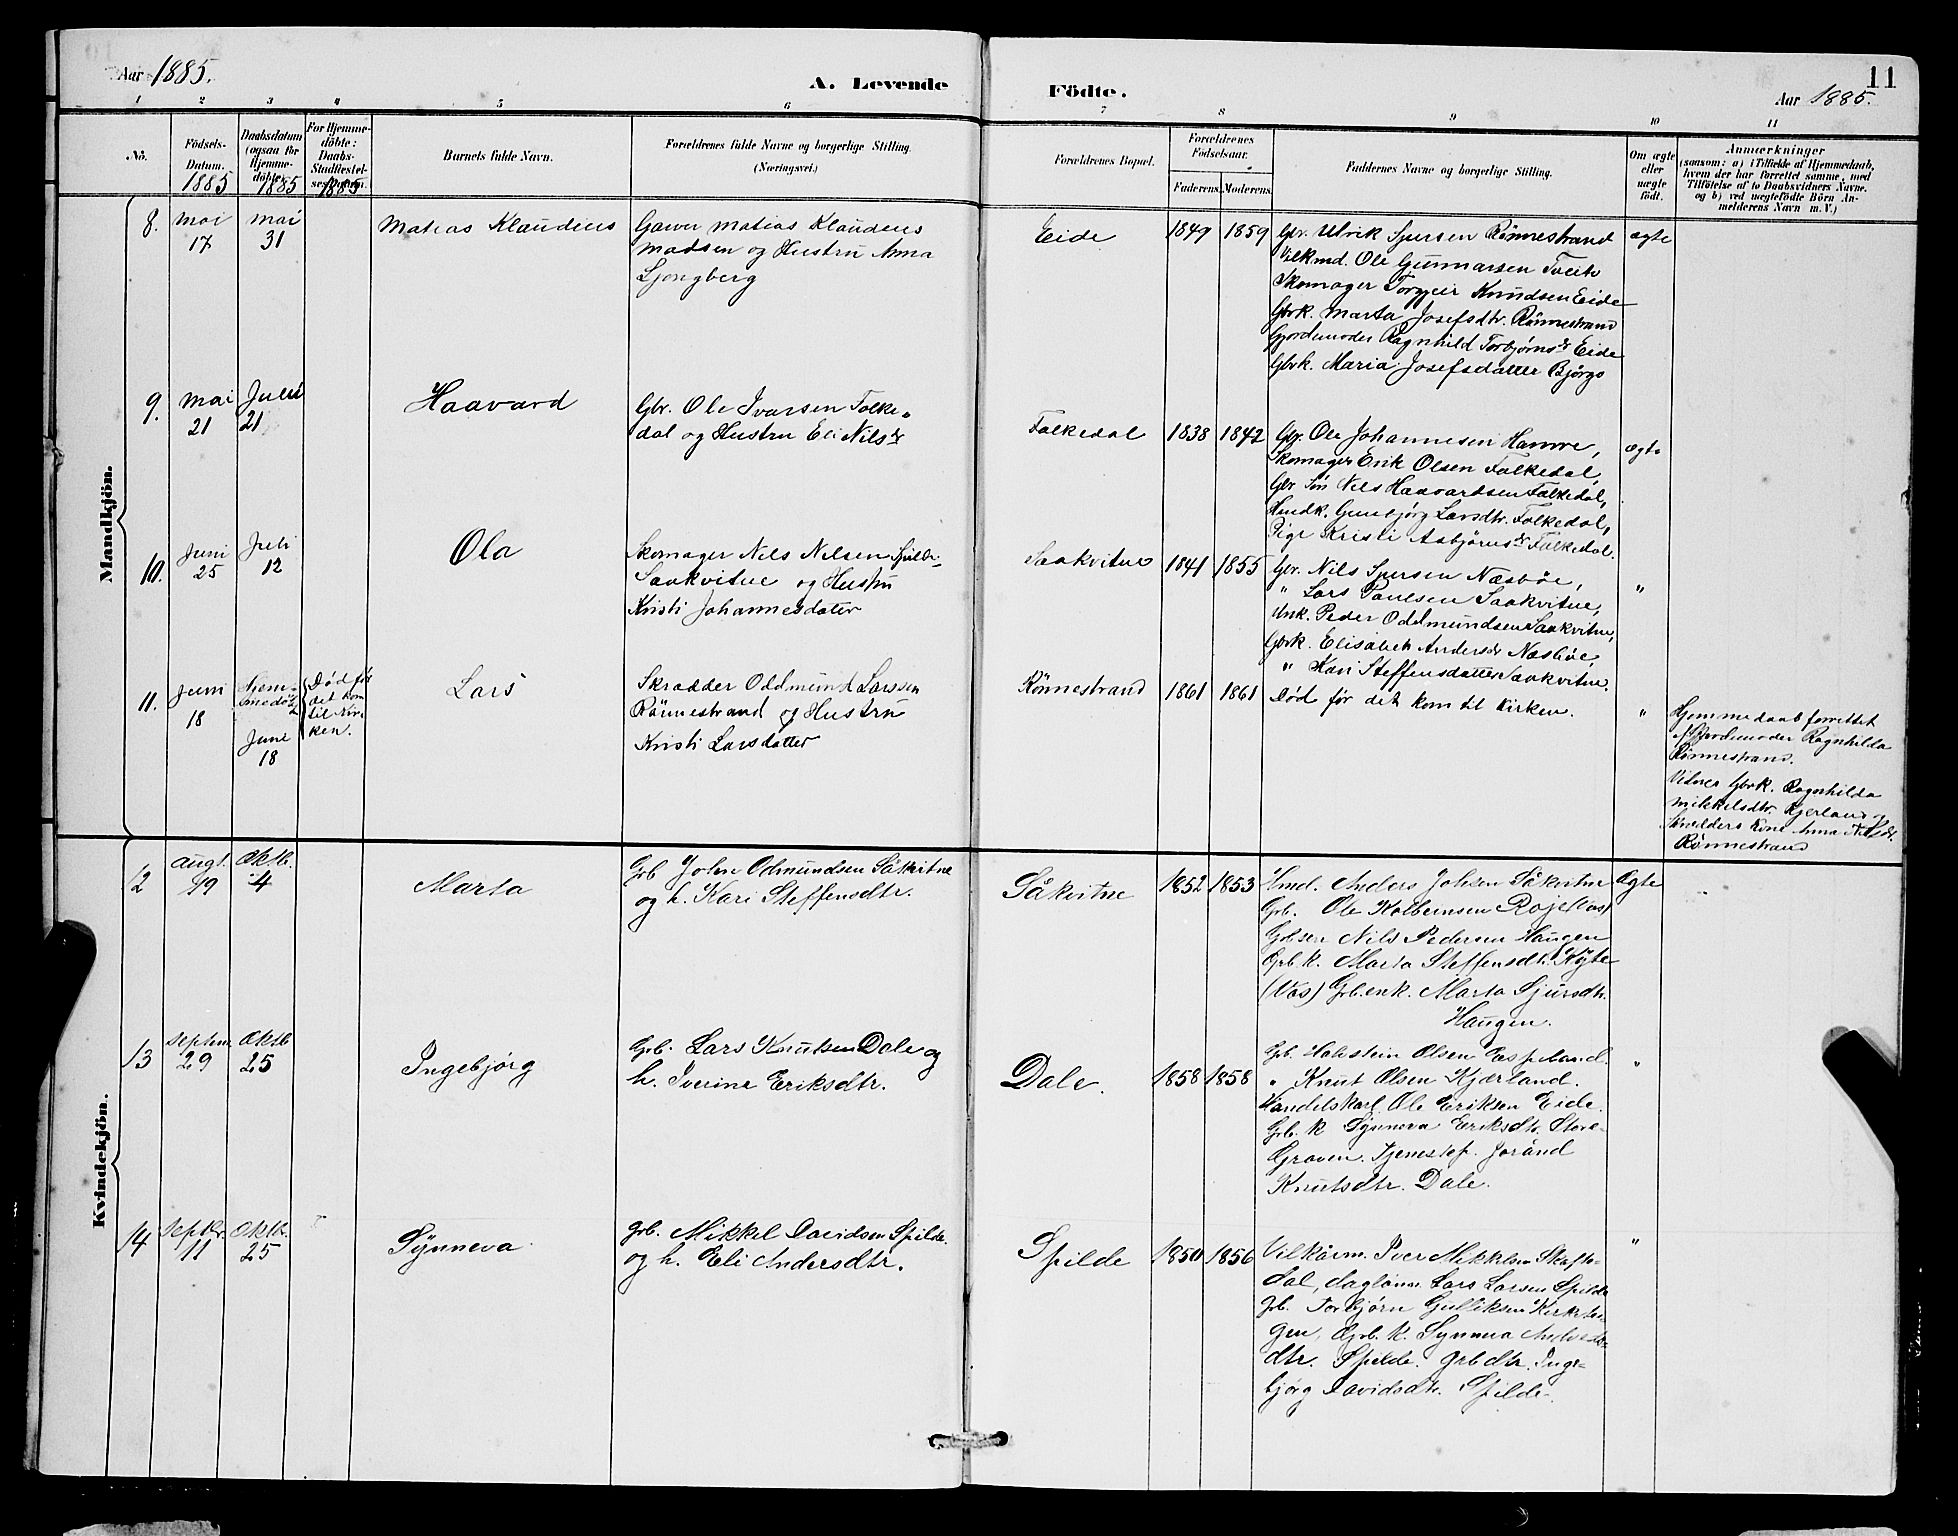 Aar 1885.
A. Levende
Födte.
11
Aar 1885.
1 2 3 4 5 6 7 8 9 10 11
No.
Födsels-
Datum.
1885
Daabsdatum
(ogsaa for
Hjemme-
döbte).
1885
For Hjemme-
döbte:
Daabs-
Stadfæstel-
ses Datum.
1885
Barnets fulde Navn.
Forældrenes fulde Navne og borgerlige Stilling.
(Næringsvei.)
Forældrenes Bopæl.
Forældrenes
Födselsaar.
Faderens.
Moderens.
Faddernes Navne og borgerlige Stilling.
Om ægte
eller
uægte
födt.
Anmærkninger
(saasom: a) i Tilfælde af Hjemmedaab,
hvem der har forrettet samme, med
Tilföielse af to Daabsvidners Navne.
og b) ved uægtefödte Börn An-
melderens Navn m. V.)
Mandkjön.
8.
Mai
17
Mai
31
Matias Klaudius
Garver Matias Klaudius
Madsen og Hustru Anna
Ljongberg
Eide
1849
1859
Gbr. Ulrik Sjursen Rönnestrand
Vilkmd. Ole Gunnarsen Tveito
Skomager Torgeir Knudsen Eide
Gbrk. Marta Josefsdtr. Rönnestrand
Gjordemoder Ragnhild Torbjørnsdr Eide
Gbrk. Maria Josefsdatter Bjørgo
ægte
9.
Mai
21
Juni
21
Haavard
Gbr. Ole Ivarsen Folke-
dal og Hustru Eli Nilsdr
Folkedal
1838
1842
Gbr. Ole Johannesen Hamre,
Skomager Erik Olsen Folkedal,
Gbr Søn Nils Haavardsen Folkedal,
Husmk. Gunbjörg Larsdtr. Folkedal,
Pige Kristi Asbjørnsdr Folkedal.
ægte
10.
Juni
25
Juli
12
Ola
Skomager Nils Nilsen
Saakvitne og Hustru
Kristi Johannesdater
Saakvitne
1841
1855
Gbr. Nils Sjursen Næsböe,
" Lars Paulsen Saakvitne,
Unk. Peder Oddmundsen Saakvitne,
Gbrk. Elisabet Andersdr Næsböe,
" Kari Steffensdatter Saakvitne.
"
11.
Juni
18
Hjem-
medöbt
Juni
18
Död før
det kom
til Kir-
ken.
Lars
Skrædder Oddmund Larssen
Rönnestrand og Hustru
Kristi Larsdatter
Rönnestrand
1861
1861
Död før det kom til Kirken.
"
Hjemmedaab forrettet
af Gjordemoder Ragnhilda
Rønnestrand.
Vidner Gbrk. Ragnhilda
Mikkelsdtr Kjerland og
Skrædders Kone Anna Nilsdr.
Rønnestrand
Kvindekjön.
12
Augt.
19
Oktb.
4
Marta
Grb John Odmundsen Såkvitne
og h. Kari Steffensdtr.
Såkvitne
1852
1853
Hmd. Anders Johsen Såkvitne
Grb. Ole Kolbeinsen Roje (Vos)
Grb.sen Nils Pedersen Haugen
Grb.k. Marta Steffensdtr. Kyte
(Vos) Grb.enk. Marta Sjursdtr.
Haugen.
Ægte
13
Septem
29
Oktb
25
Ingebjørg
Grb. Lars Knutsen Dale og
h. Iverine Eriksdtr.
Dale.
1858
1858
Grb. Halstein Olsen Espeland.
" Knut Olsen Kjærland.
Handelskarl Ole Eriksen Eide.
Grb. k Synneva Eriksdtr. Store-
Graven. Tjenestep. Jorånd
Knutsdtr. Dale.
"
14
Septbr.
11
Oktbr.
25
Synneva
Grb. Mikkel Davidsen Spilde.
og h. Eli Andersdtr.
Spilde
1850
1856
Vilkårm. Iver Mikkelsen Skafte-
dal, dagløner Lars Larsen Spilde
Grb. Torbjørn Gulliksen Kirkte-
gen, Grb. k. Synneva Anders-
dtr. Spilde. Grb dtr. Inge-
bjørg Davidsdtr. Spilde.
"